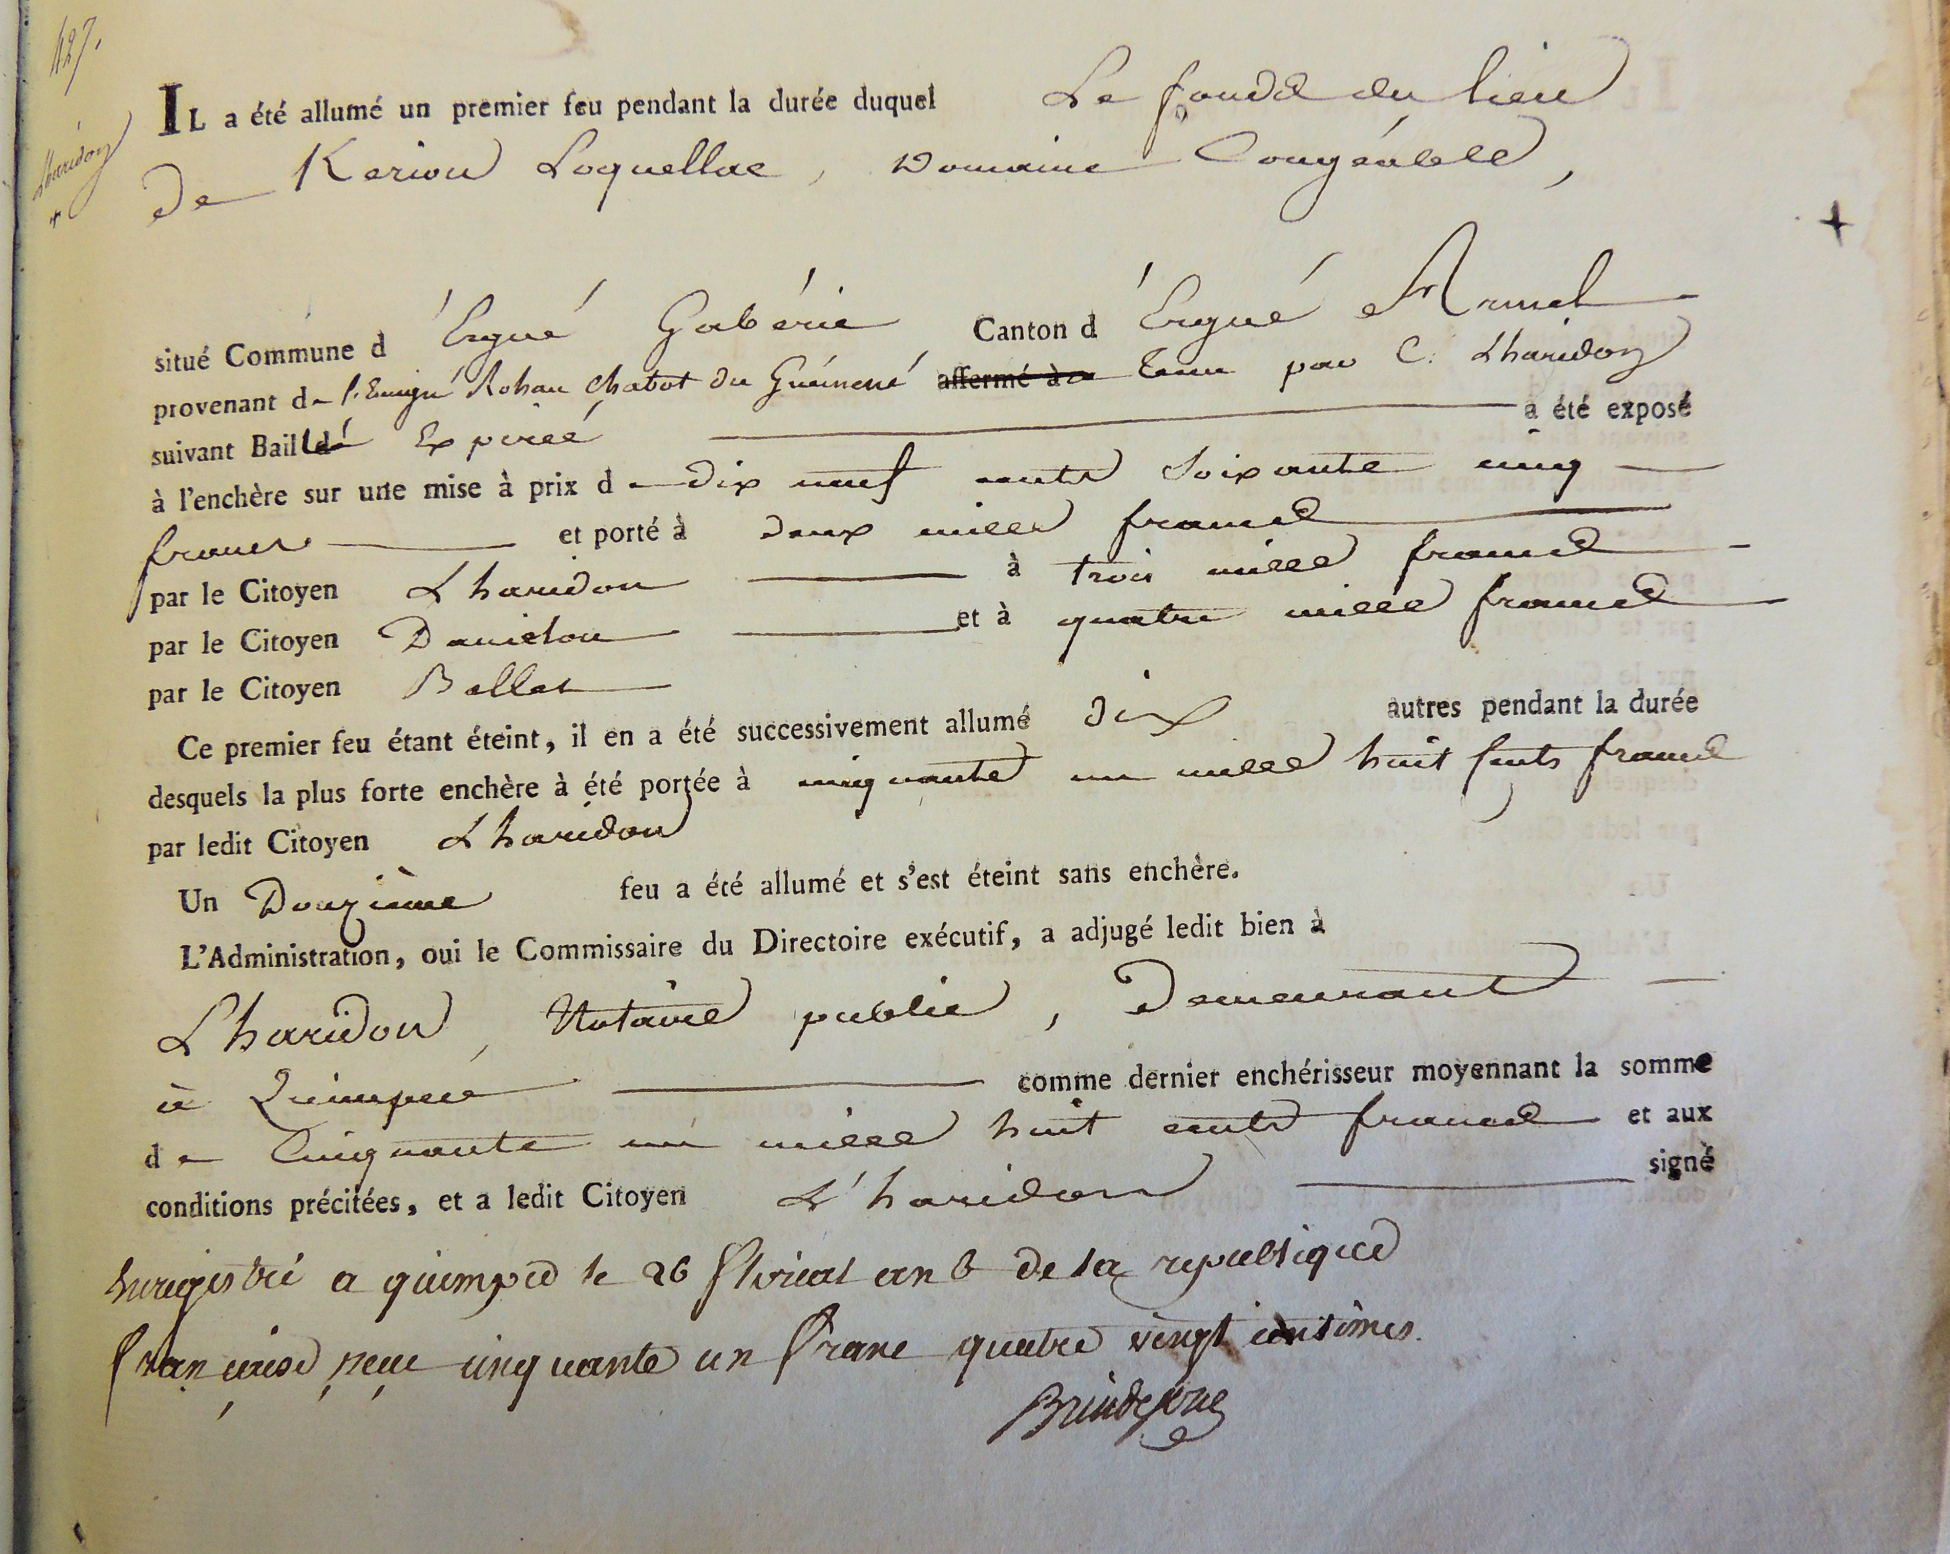 427.
Lharidon
+
IL a été allumé un premier feu pendant la durée duquel Le fonds du lieu
de Keriou Loquellae, Domaine Congéable,
+
situé Commune d'Ergué Gabéric Canton d'Ergué Armel
provenant de l'Emigré Rohan Chabot du Guémené affermé à Tenu par C. Lharidon
suivant Bail Expiré a été exposé
à l'enchère sur une mise à prix de dix neuf cents soixante cinq
francs et porté à deux mille francs
par le Citoyen Lharidon à trois mille francs
par le Citoyen Danielou et à quatre mille francs
par le Citoyen Bollet
Ce premier feu étant éteint, il en a été successivement allumé dix autres pendant la durée
desquels la plus forte enchère à été portée à cinquante un mille huit cents francs
par ledit Citoyen Lharidon
Un Douzième feu a été allumé et s'est éteint sans enchère.
L'Administration, oui le Commissaire du Directoire exécutif, a adjugé ledit bien à
Lharidon, Notaire public, Demeurant
à Quimper comme dernier enchérisseur moyennant la somme
de Cinquante un mille huit cents francs et aux
conditions précitées, et a ledit Citoyen L'haridon signé
Enregistré a quimper le 26 floreal an 6 de la republique
française, reçu cinquante un franc quatre vingt centimes.